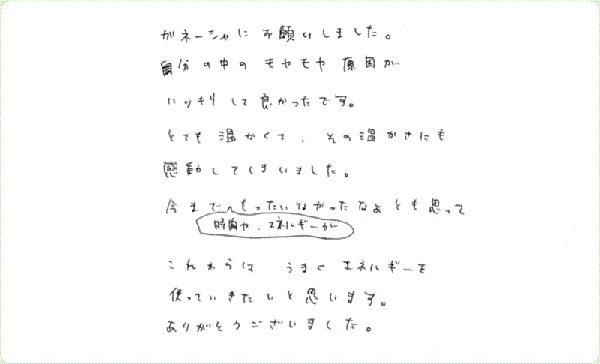 ガネーシャにお願いしました。
自分の中のモヤモヤ原因が
ハッキリして良かったです。
とても温かくて、その温かさにも
感動してしまいました。
今までもったいなかったなぁとも思って
時間や、エネルギーが
これからは うまくエネルギーを
使っていきたいと思います。
ありがとうございました。